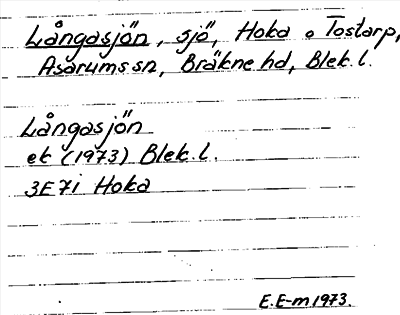 Långasjön, sjö, Hoka o Tostarp,
Asarums sn, Bräkne hd, Blek. l.
Långasjön
ek (1973) Blek. l.
3E 7i Hoka
E.E-m 1973.